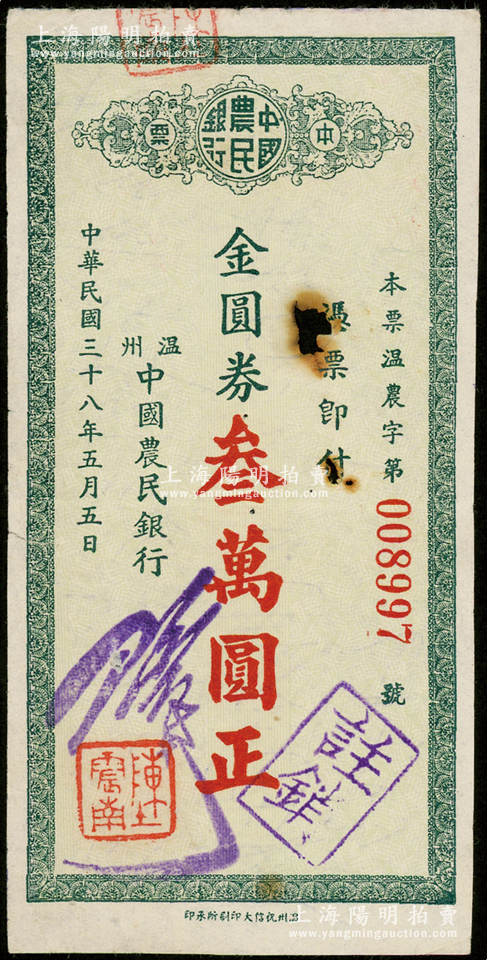 上海陽明拍賣
www.yangmingauction.com
中國農民銀行
本票
本票溫農字第008997號
憑票即付
金圓券叁萬圓正
溫州中國農民銀行
中華民國三十八年五月五日
註銷
上海陽明拍賣
www.yangmingauction.com
上海陽明拍賣
www.yangmingauction.com